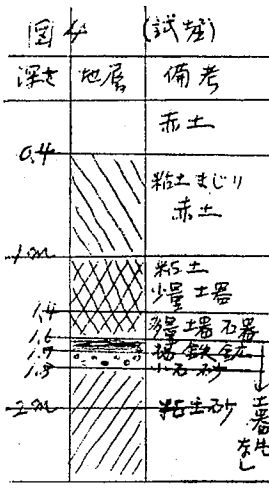 図4 (試掘)
深さ 地層 備考
赤土
0.4
粘土まじり
赤土
1m
粘土
少量土器
1.4
多量土器石器
1.6
褐鉄鉱
1.7
小石砂
1.8
2m
粘土砂
土器なし